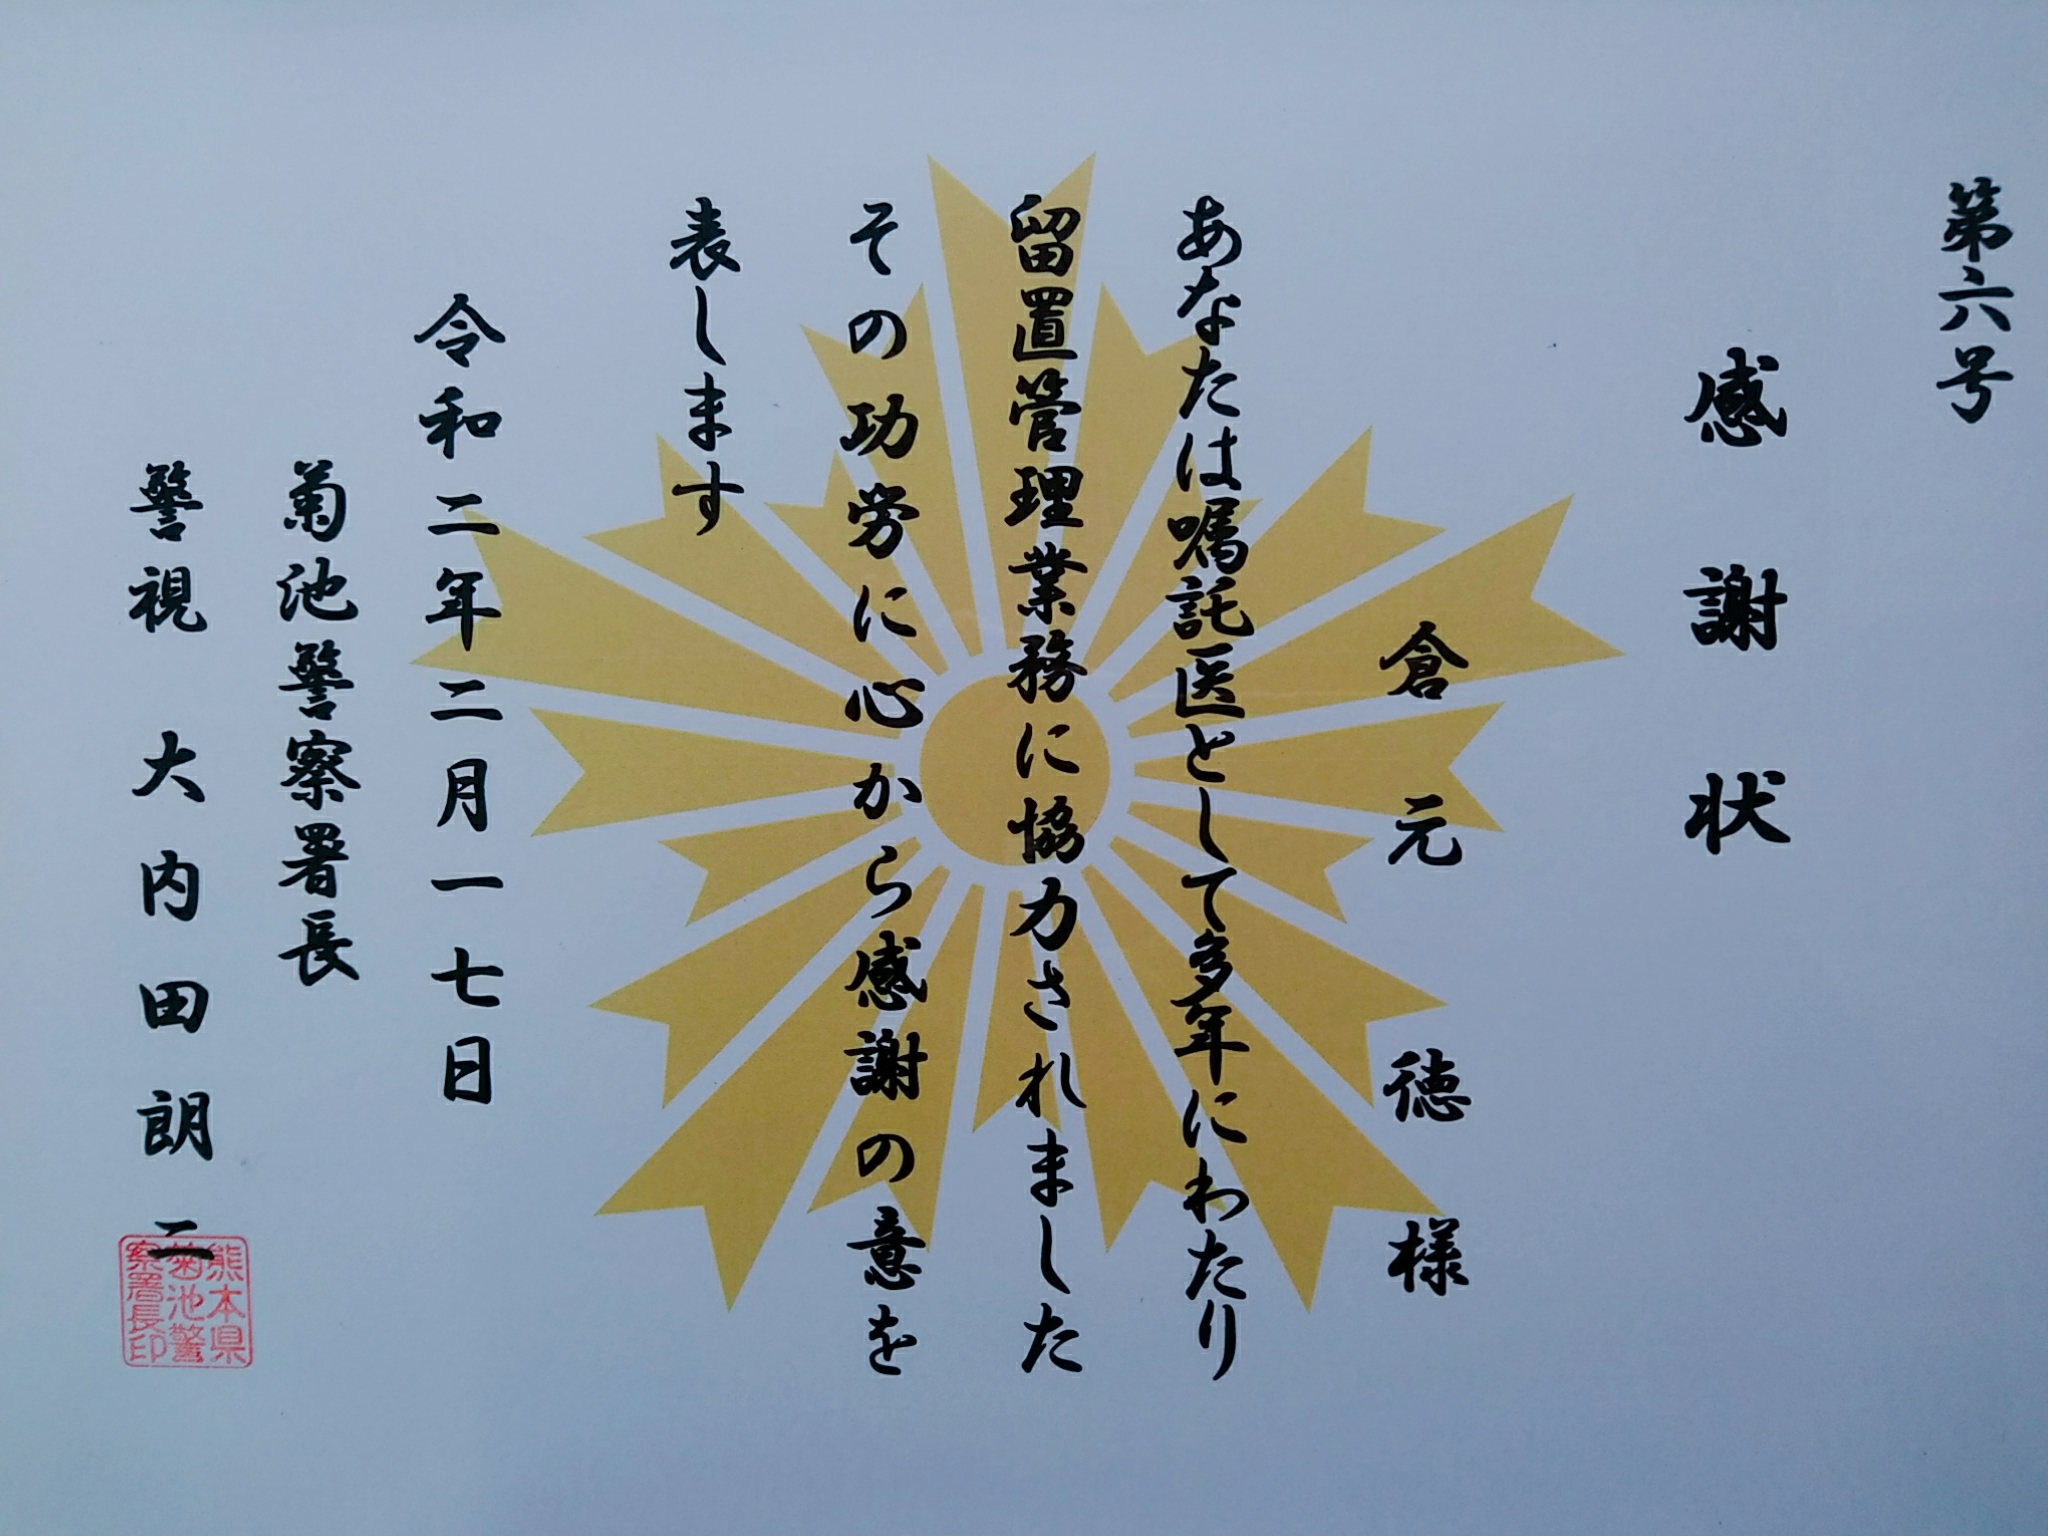 第六号
感謝状
倉元徳様
あなたは嘱託医として多年にわたり
留置管理業務に協力されました
その功労に心から感謝の意を
表します
令和二年二月一七日
菊池警察署長
警視 大内田朗二
熊本県
菊池警
察署長印